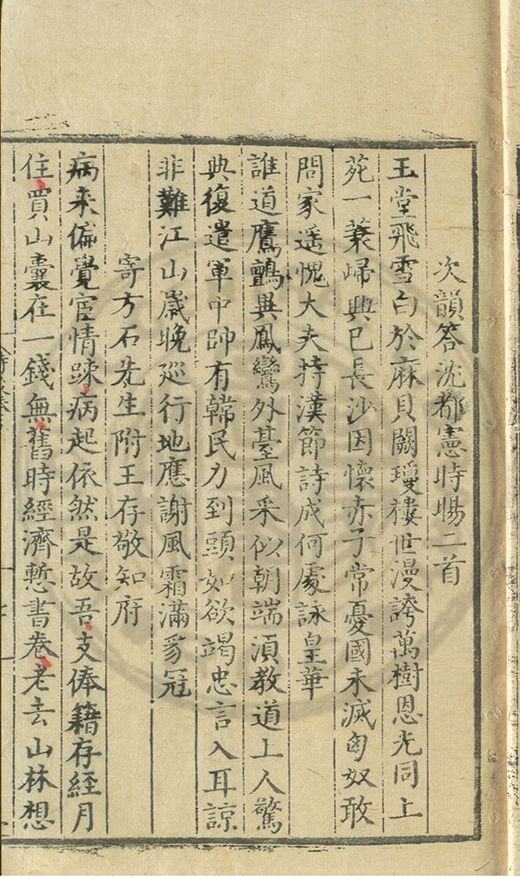 次韻答沈都憲時暘二首
玉堂飛雪白於麻貝闕瓊樓世漫誇萬樹恩光同上
苑一蓑歸興已長沙因懷赤子常憂國未滅匈奴敢
問家遥愧大夫持漢節詩成何處詠皇華
誰道鷹鸇異鳳鸞外臺風采似朝端湏教道上人驚
典復遣軍中帥有韓民力到頭如欲竭忠言入耳諒
非難江山歲晚廵行地應謝風霜滿豸冠
寄方石先生附王存敬知府
病来偏覺宦情踈病起依然是故吾支俸籍存經月
住買山囊在一錢無舊時經濟慙書卷老去山林想